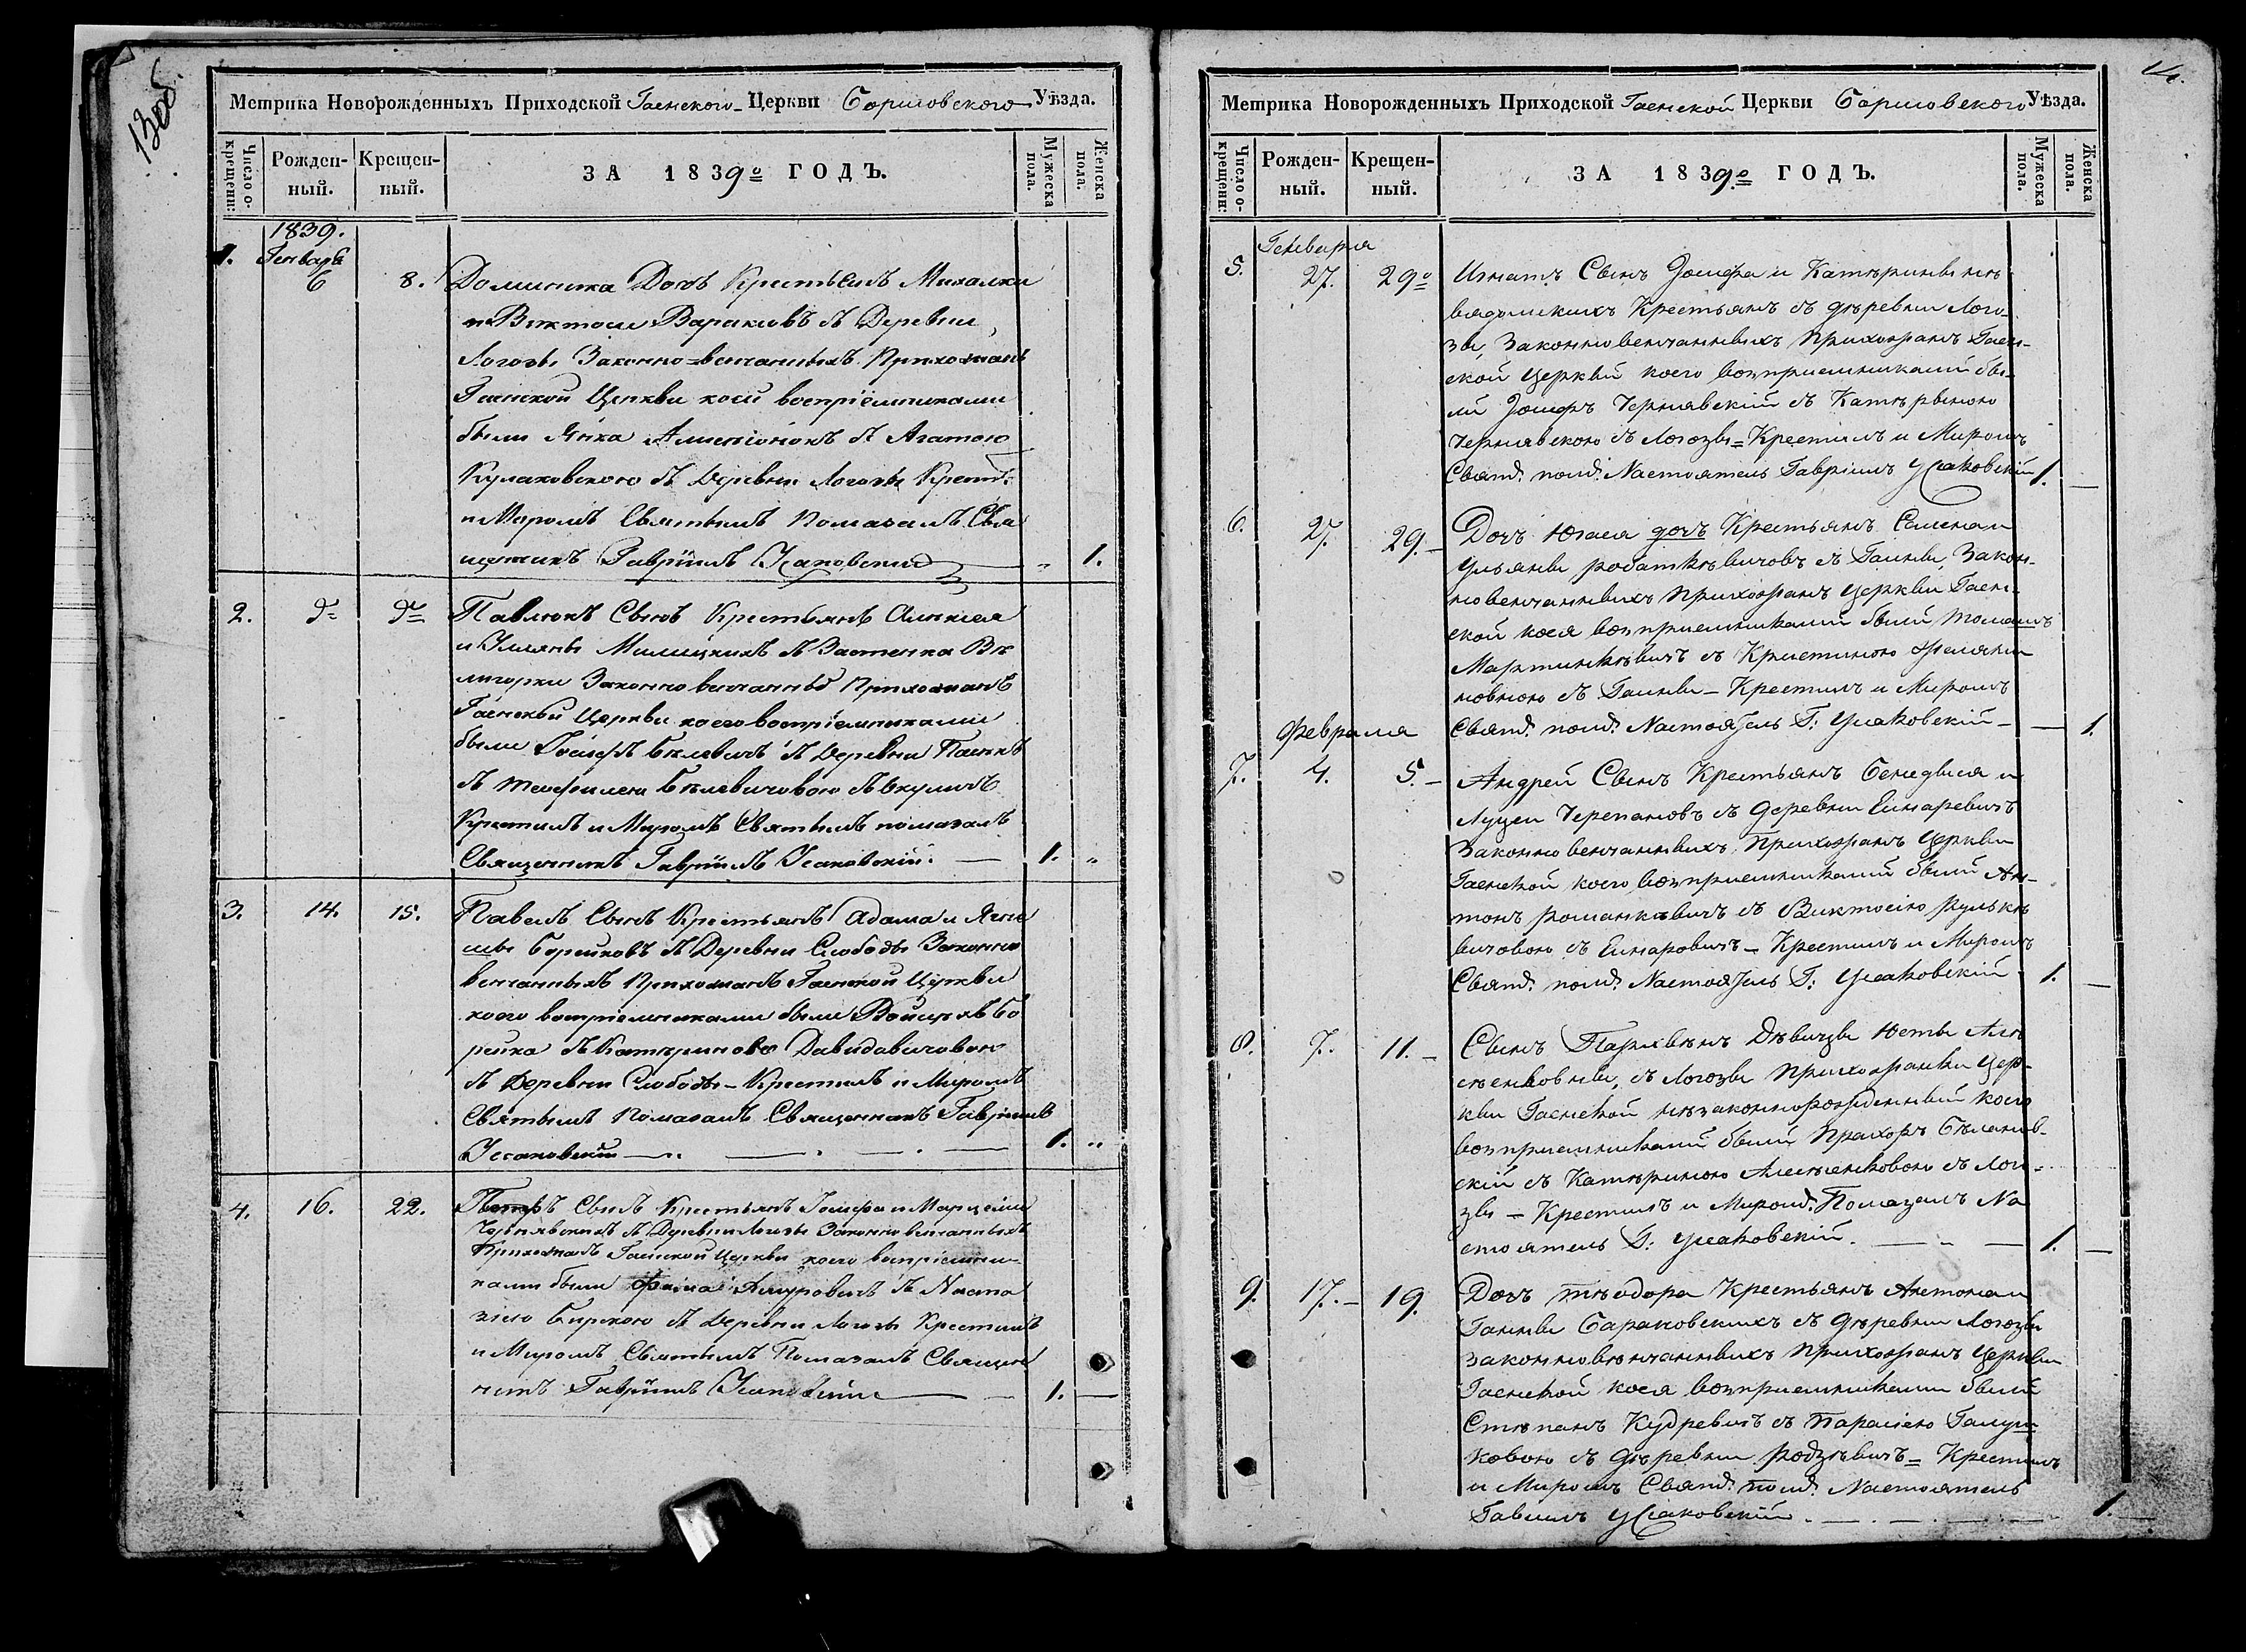 13об.
Метрика Новорожденныхъ Приходской Гаенского Церкви Борисовского Уѣзда.
Число о-
крещенн:
Рожден-
ный.
Крещен-
ный.
ЗА 1839º ГОДЪ.
Мужеска
пола.
Женска
пола.
1839.
1. Генваря
6 8. Доминика Дочь Крестьянъ Михалки
и Виктосы съ Деревни
Логозы Законно=венчанныхъ Прихожанъ
Гаенской Церкви коей воспріемниками
были съ Агатою
Кулаковскою съ Деревни Логозы Крест:
и Мѵромъ Святымъ Помазалъ Свя
щеникъ Гавріилъ Усаковскій „ 1.
2. 9 9 Павлюкъ Сынъ Крестьянъ
и Ульяны Милицкихъ съ Застенка Ве
лигорки Законно венчанныхъ Прихожанъ
Гаенской Церкви коего воспріемниками
были Іосифъ Белевичъ съ Деревни
съ Теофилею Белевичовою съ
Крестилъ и Мѵромъ Святымъ помазалъ
Священникъ Гавріилъ Усаковскій. — 1. „
3. 14. 15. Павелъ Сынъ Крестьянъ Адама и
съ Деревни Слободы Законно
венчанныхъ Прихожанъ Гаенской Церкви
коего воспріемниками были Войцехъ Бо
рейка съ Катериною Давидовичовою
съ Деревни Слободы – Крестилъ и Мѵромъ
Святымъ Помазалъ Священникъ Гавріилъ
Усаковскій — 1. „
4. 16. 22. Петръ Сынъ Крестьянъ Іосифа и Марцели
Чернявскихъ съ Деревни Логозы Законно венчанныхъ
Прихожанъ Гаенской Церкви коего воспріемни-
ками были съ Наста
зіею Бирскою съ Деревни Логозы Крестилъ
и Мѵромъ Святымъ Помазалъ Священ
никъ Гавріилъ Усаковскій — 1. —
14.
Метрика Новорожденныхъ Приходской Гаенской Церкви Борисовского Уѣзда.
Число о-
крещенн:
Рожден-
ный.
Крещен-
ный.
ЗА 1839º ГОДЪ.
Мужеска
пола.
Женска
пола.
Генваря
5. 27. 29º Игнатъ Сынъ Іосифа и Катерины
Крестьянъ съ деревни Лого-
зы, Законновенчанныхъ Прихожанъ Гаен-
ской Церкви коего возприемниками бы-
ли Іосифъ Чернявскій съ Катерыною
Чернявскою съ Логозы = Крестилъ и Миромъ
Свят. пом. Настоятель Гавріилъ Усаковскій 1. —
6. 27. 29. Дочь Югася дочь Крестьянъ Самена и
Ульяны съ Гаины, Закон-
новенчанныхъ Прихожанъ Церкви Гаен-
ской коея возприемниками были Томашъ
Мартинкевичъ съ Кристиною
съ Гаины – Крестилъ и Миромъ
Свят. пом. Настоятель Г: Усаковскій — — 1.
Февраля
7. 4. 5. – Андрей Сынъ Крестьянъ Бенедыся и
Луцеи Черепановъ съ деревни Гинаревичъ
Законно венчанныхъ Прихожанъ Церкви
Гаенской коего возприемниками были Ан-
тонъ Романкевичъ съ Виктосію
вичовою съ Гинаровичъ – Крестилъ и Миромъ
Свят. пом. Настоятель Г: Усаковскій 1. —
8. 7. 11. – Сынъ Дѣвицы Юсты Але
сѣенковны, съ Логозы Прихожанки Цер-
кви Гаенской незаконнорожденный коего
возприемниками были Прахоръ
скій съ Катериною съ Лого-
зы – Крестилъ и Миром. Помазалъ На
стоятель Г: Усаковскій. — 1. —
9. 17. – 19. Дочь Теодора Крестьянъ Антона и
Ганны Бараковскихъ съ деревни Логозы
законновенчанныхъ Прихожанъ Церкви
Гаенской коея возприемниками были
Степанъ Кудревичъ съ Парасією
ковою съ деревни Родзевичъ = Крестилъ
и Миромъ Свят. пом. Настоятель
Гавиилъ Усаковскій. — 1. —